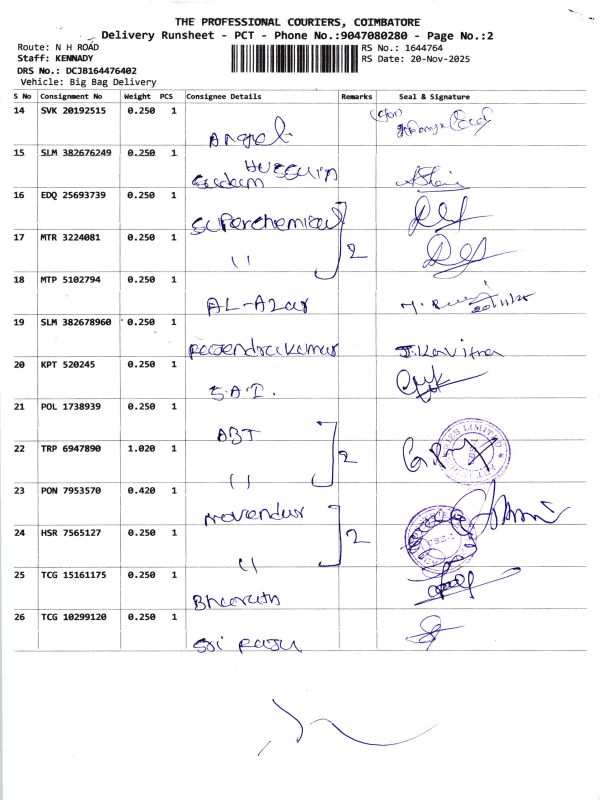 THE PROFESSIONAL COURIERS, COIMBATORE
Delivery Runsheet - PCT - Phone No.:9047080280 - Page No.:2
Route: N H ROAD
Staff: KENNADY
DRS No.: DCJB164476402
Vehicle: Big Bag Delivery
RS No.: 1644764
RS Date: 20-Nov-2025
S No Consignment No Weight PCS Consignee Details Remarks Seal & Signature
14 SVK 20192515 0.250 1
Angel
15 SLM 382676249 0.250 1
Hussain
Saddam
16 EDQ 25693739 0.250 1
Superchemical
17 MTR 3224081 0.250 1 2
11
18 MTP 5102794 0.250 1
AL-Azar
20/11/25
19 SLM 382678960 0.250 1
Rajendrakumar J.Kavitha
20 KPT 520245 0.250 1
S.A.I.
21 POL 1738939 0.250 1
ABT
22 TRP 6947890 1.020 1 2
11
23 PON 7953570 0.420 1
24 HSR 7565127 0.250 1 2
11
25 TCG 15161175 0.250 1
Bharath
26 TCG 10299120 0.250 1
Sri Raju